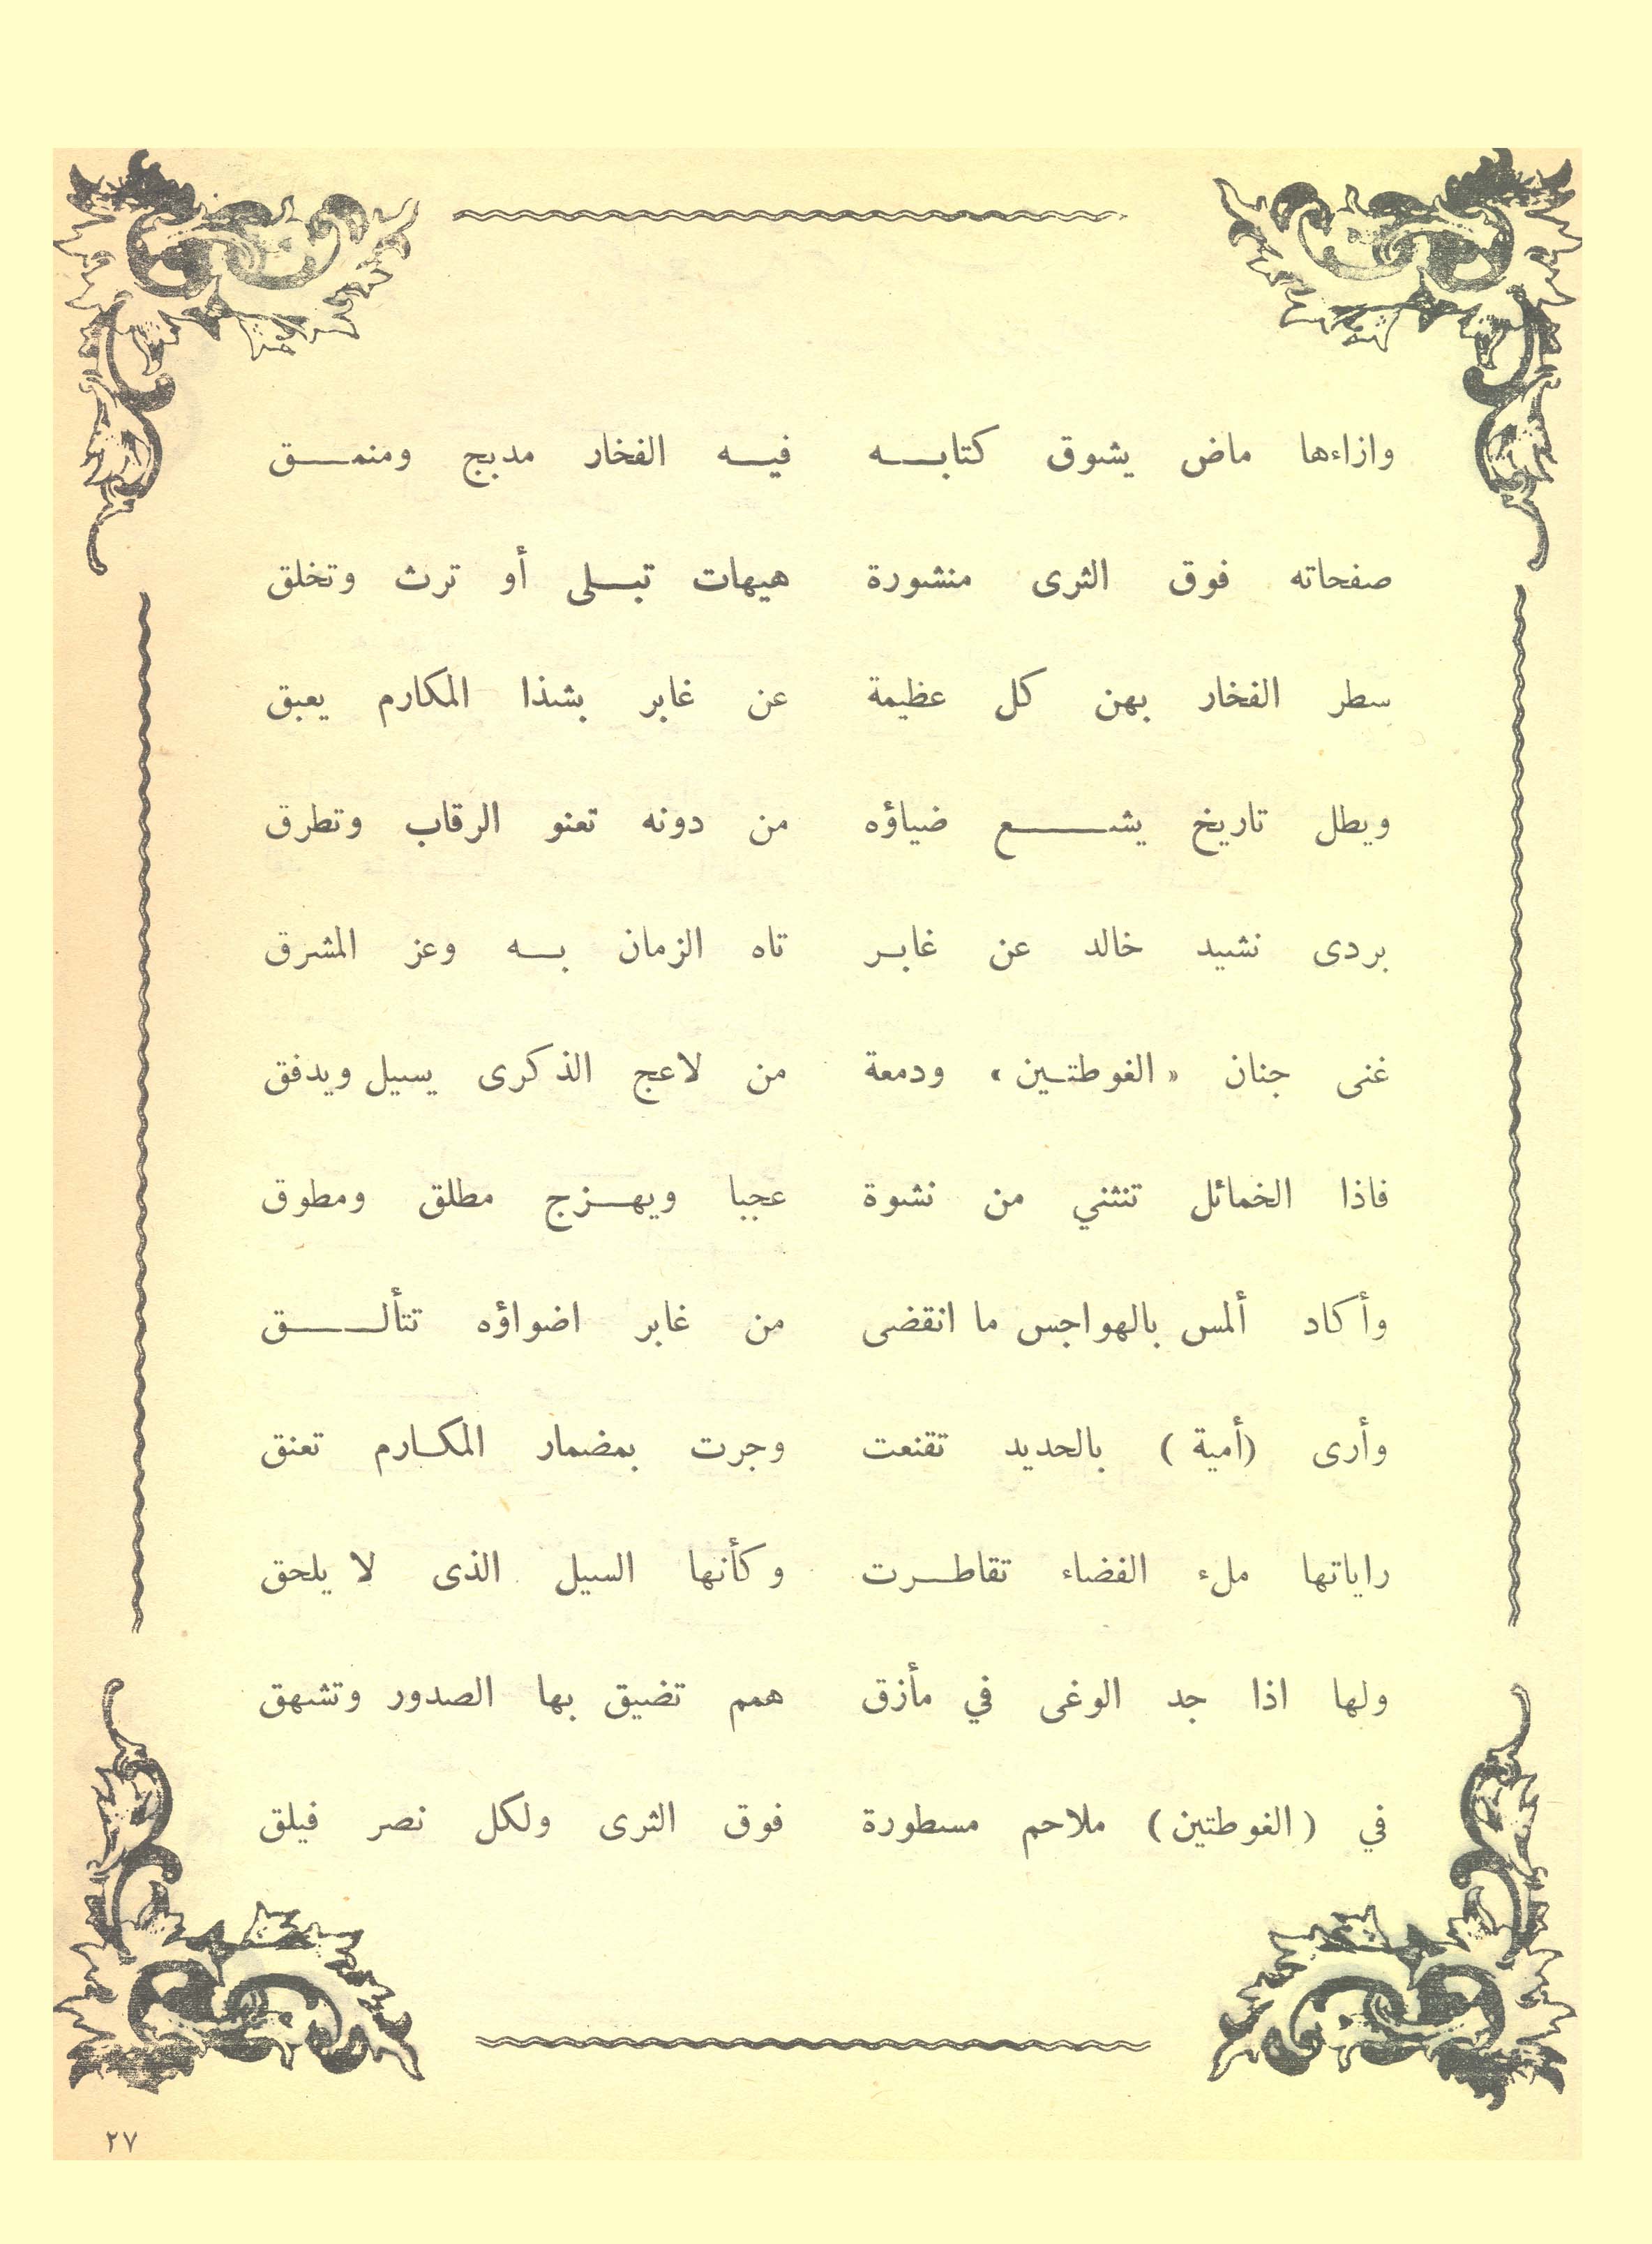 وازاءها ماض يشوق كتابه فيه الفخار مدبج ومنمق
صفحاته فوق الثرى منشورة هيهات تبلى أو ترث وتخلق
سطر الفخار بهن كل عظيمة عن غابر بشذا المكارم يعبق
ويطل تاريخ يشع ضياؤه من دونه تعنو الرقاب وتطرق
بردى نشيد خالد عن غابر تاه الزمان به وعز المشرق
غنى جنان « الغوطتين » ودمعة من لاعج الذكرى يسيل ويدفق
فاذا الخمائل تنثني من نشوة عجبا ويهزج مطلق ومطوق
وأكاد ألمس بالهواجس ما انقضى من غابر اضواؤه تتألق
وأرى (أمية) بالحديد تقنعت وجرت بمضمار المكارم تعنق
راياتها ملء الفضاء تقاطرت وكأنها السيل الذى لا يلحق
ولها اذا جد الوغى في مأزق همم تضيق بها الصدور وتشهق
في (الغوطتين) ملاحم مسطورة فوق الثرى ولكل نصر فيلق
٢٧